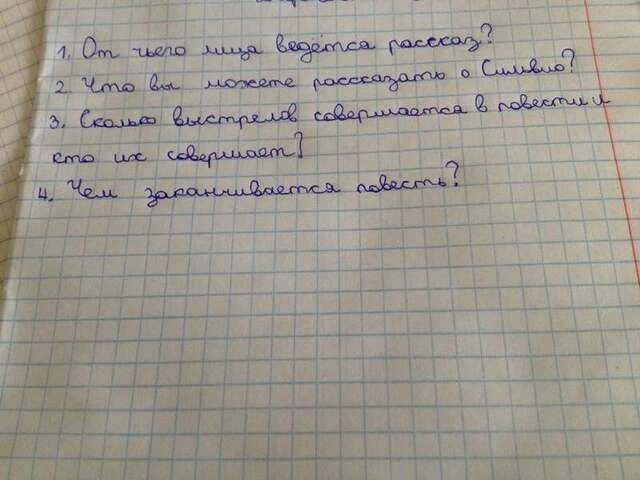 1. От чьего лица ведётся рассказ?
2. Что вы можете рассказать о Сильвио?
3. Сколько выстрелов совершается в повести и
кто их совершает?
4. Чем заканчивается повесть?